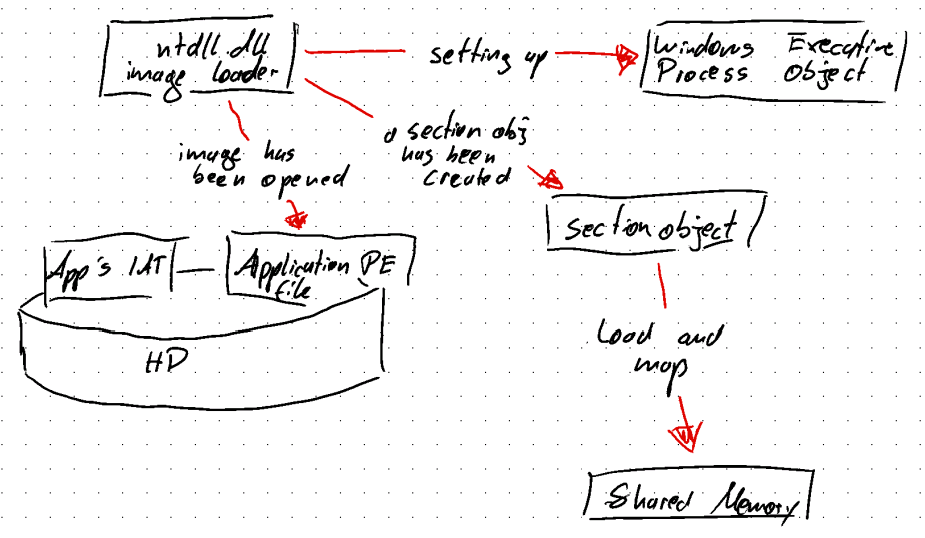 ntdll.dll
image loader
setting up
Windows Executive
Process Object
image has
been opened
a section obj
has been
created
section object
App's IAT
Application PE
file
HD
Load and
map
Shared Memory